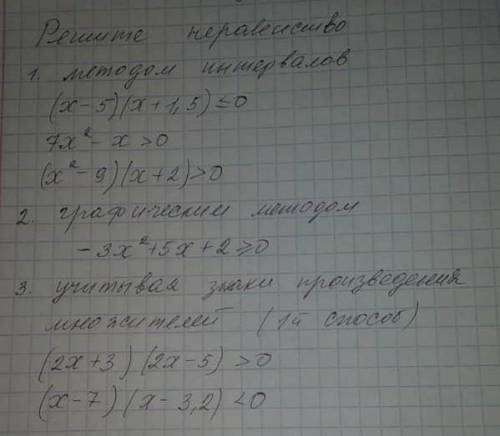 Решите неравенство
1. методом интервалов
(x-5)(x+1,5)≤0
7x²-x>0
(x²-9)(x+2)>0
2. графическим методом
-3x²+5x+2≥0
3. учитывая знаки произведения
множителей (1й способ)
(2x+3)(2x-5)>0
(x-7)(x-3,2)<0